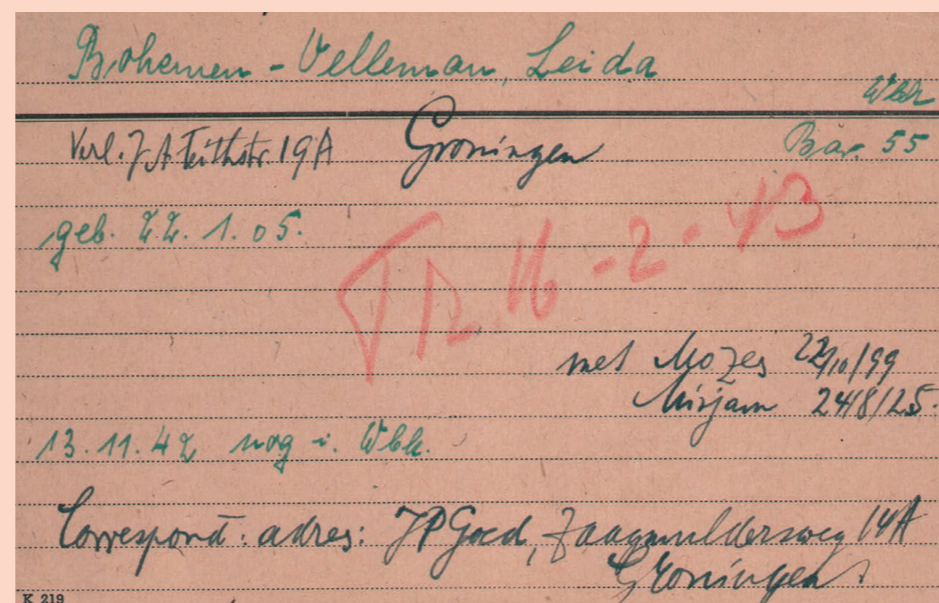 Bohemen - Velleman, Leida
Wbk
Verl. J A Feithstr. 19A Groningen Bar. 55
geb. 22. 1. 05.
Tr. 16-2-43
met Mozes 22/10/99
Mirjam 24/8/25.
13.11.42 nog i. Wbk.
Correspond. adres: JP Goed, Zaagmuldersweg 14A
Groningen
K 219